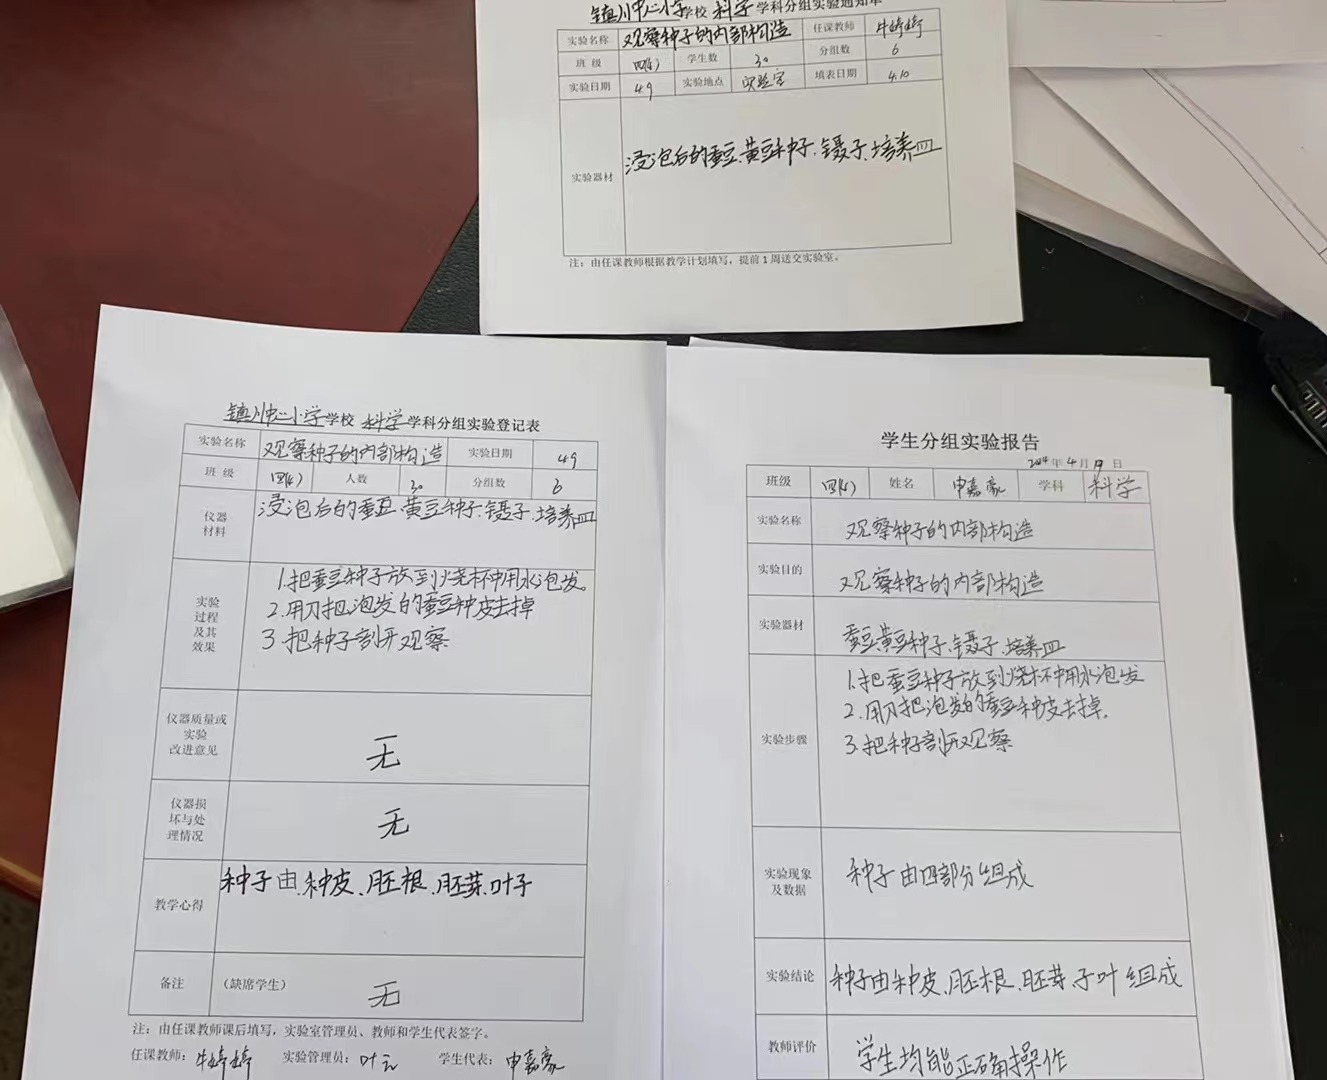 镇川中心小学学校 科学 学科分组实验通知单
实验名称 观察种子的内部构造 任课教师 牛婷婷
班 级 四(4) 学生数 30 分组数 6
实验日期 4.9 实验地点 实验室 填表日期 4.10
实验器材 浸泡后的蚕豆、黄豆种子、镊子、培养皿
注：由任课教师根据教学计划填写，提前1周送交实验室。
镇川中心小学学校 科学 学科分组实验登记表
实验名称 观察种子的内部构造 实验日期 4.9
班 级 四(4) 人数 30 分组数 6
仪器
材料
浸泡后的蚕豆、黄豆种子、镊子、培养皿
实验
过程
及其
效果
1.把蚕豆种子放到烧杯中用水泡发。
2.用刀把泡发的蚕豆种皮去掉
3.把种子剖开观察
仪器质量或
实验
改进意见
无
仪器损
坏与处
理情况
无
教学心得 种子由、种皮、胚根、胚芽、叶子
备注 (缺席学生) 无
注：由任课教师课后填写，实验室管理员、教师和学生代表签字。
任课教师：牛婷婷 实验管理员：叶云 学生代表：申嘉豪
学生分组实验报告
2024年4月19日
班级 四(4) 姓名 申嘉豪 学科 科学
实验名称 观察种子的内部构造
实验目的 观察种子的内部构造
实验器材 蚕豆、黄豆种子、镊子、培养皿
实验步骤
1.把蚕豆种子放到烧杯中用水泡发
2.用刀把泡发的蚕豆种皮去掉.
3.把种子剖开观察
实验现象
及数据
种子由四部分组成
实验结论 种子由种皮、胚根、胚芽、子叶组成
教师评价 学生均能正确操作